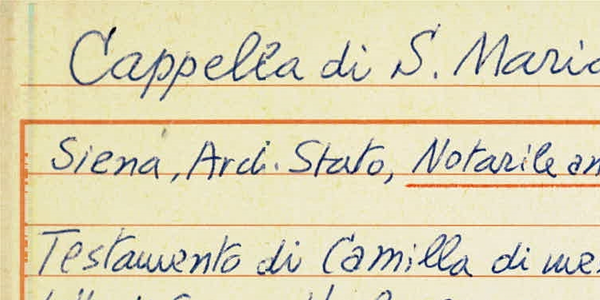 Cappella di S. Maria
Siena, Arch. Stato, Notarile an
Testamento di Camilla di me